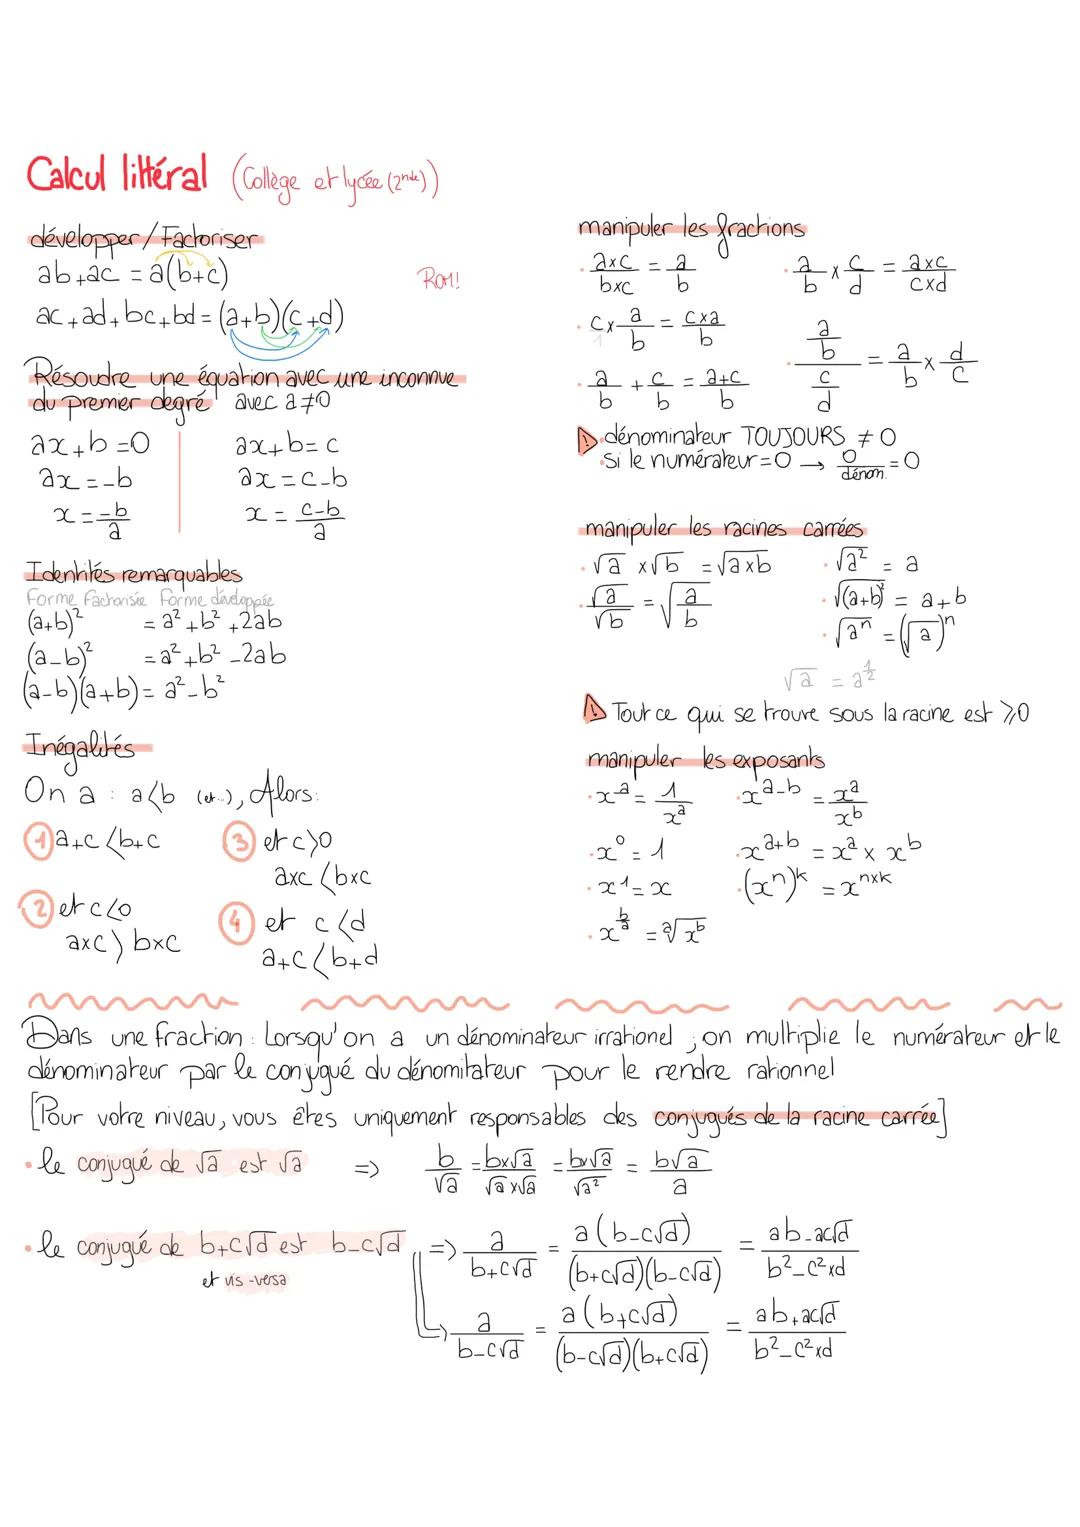 Calcul littéral (Collège et lycée (2nde))
développer/Factoriser
ab+ac = a(b+c)
ROM!
ac+ad+bc+bd = (a+b)(c+d)
Résoudre une équation avec une inconnue
du premier degré avec a≠0
ax+b=0
ax=-b
x = -b/a
ax+b=c
ax=c-b
x = c-b/a
Identités remarquables
Forme Factorisée Forme développée
(a+b)² = a²+b²+2ab
(a-b)² = a²+b²-2ab
(a-b)(a+b) = a²-b²
Inégalités
On a : a<b (et...), Alors:
① a+c<b+c
② et c<0
axc > bxc
③ et c>0
axc < bxc
④ et c<d
a+c<b+d
manipuler les fractions
· axc/bxc = a/b
· a/b x c/d = axc/cxd
· c x a/b = cxa/b
1
· a/b + c/b = a+c/b
· (a/b)/(c/d) = a/b x d/c
⚠ · dénominateur TOUJOURS ≠ 0
· si le numérateur=0 → 0/dénom. = 0
manipuler les racines carrées
· √a x √b = √axb
· √a/√b = √(a/b)
· √a² = a
· √(a+b)² = a+b
· √aⁿ = (√a)ⁿ
√a = a^½
⚠ Tout ce qui se trouve sous la racine est ≥0
manipuler les exposants
· x⁻ᵃ = 1/xᵃ
· x^(a-b) = xᵃ/x^b
· x⁰ = 1
· x^(a+b) = xᵃ x x^b
· x¹ = x
· (xⁿ)^k = x^(nxk)
· x^(b/a) = ᵃ√x^b
Dans une fraction : Lorsqu'on a un dénominateur irrationel ; on multiplie le numérateur et le
dénominateur par le conjugué du dénomitateur pour le rendre rationnel
[Pour votre niveau, vous êtes uniquement responsables des conjugués de la racine carrée]
· le conjugué de √a est √a => b/√a = bx√a/√ax√a = bx√a/√a² = b√a/a
· le conjugué de b+c√d est b-c√d => a/(b+c√d) = a(b-c√d)/(b+c√d)(b-c√d) = ab-ac√d/b²-c²xd
et vis-versa
=> a/(b-c√d) = a(b+c√d)/(b-c√d)(b+c√d) = ab+ac√d/b²-c²xd